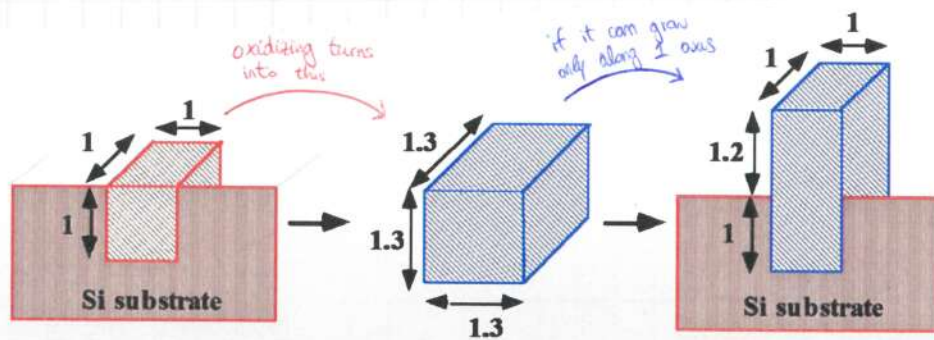 oxidizing turns
into this
if it can grow
only along 1 axis
1
1
1
Si substrate
1.3
1.3
1.3
1
1
1.2
1
Si substrate